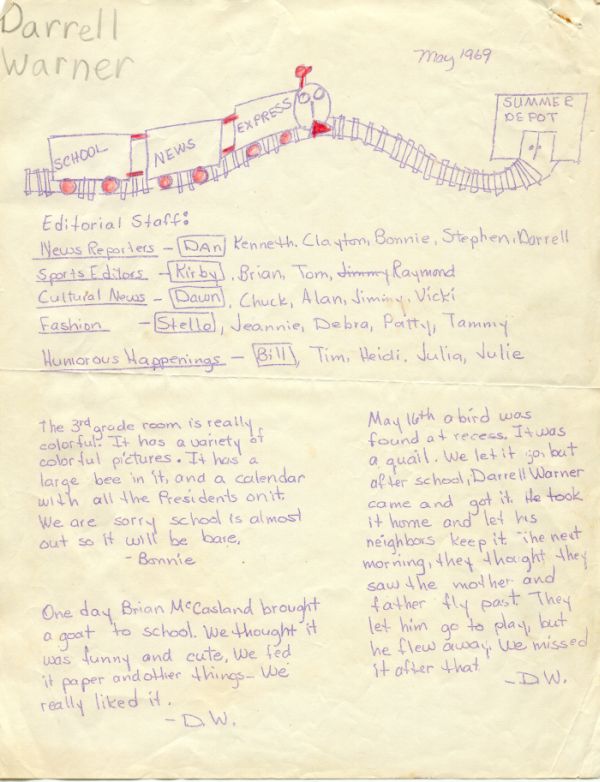 Darrell
Warner
May 1969
SCHOOL
NEWS
EXPRESS
SUMMER
DEPOT
Editorial Staff:
News Reporters - DAn Kenneth, Clayton, Bonnie, Stephen, Darrell
Sports Editors - Kirby, Brian, Tom, Jimmy Raymond
Cultural News - Dawn, Chuck, Alan, Jiminy, Vicki
Fashion - Stello, Jeannie, Debra, Patty, Tammy
Humorous Happenings - Bill, Tim, Heidi, Julia, Julie
The 3rd grade room is really
colorful. It has a variety of
colorful pictures. It has a
large bee in it, and a calendar
with all the Presidents on it.
We are sorry school is almost
out so it will be bare.
- Bonnie
One day Brian McCasland brought
a goat to school. We thought it
was funny and cute. We fed
it paper and other things - We
really liked it.
- D.W.
May 16th a bird was
found at recess. It was
a quail. We let it go, but
after school, Darrell Warner
came and got it. He took
it home and let his
neighbors keep it. The next
morning, they thought they
saw the mother and
father fly past. They
let him go to play, but
he flew away. We missed
it after that
- D.W.